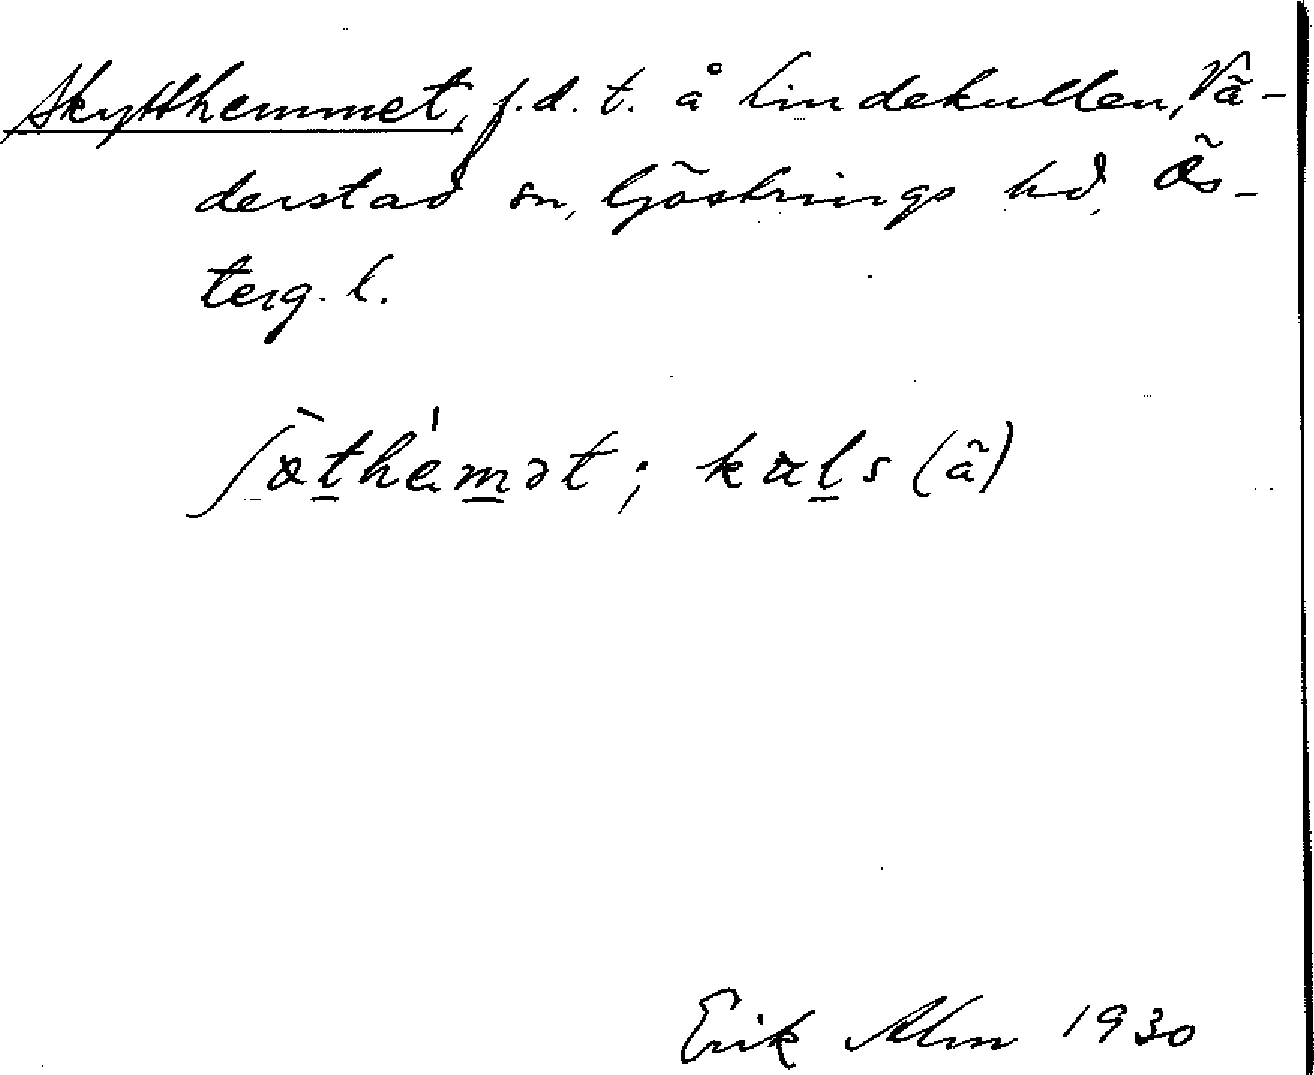 Skytthemmet, f.d.t. å Lindekullen, Vä-
derstad sn, Göstrings hd, Ös-
terg. l.
kals (ä)
Erik Alm 1930